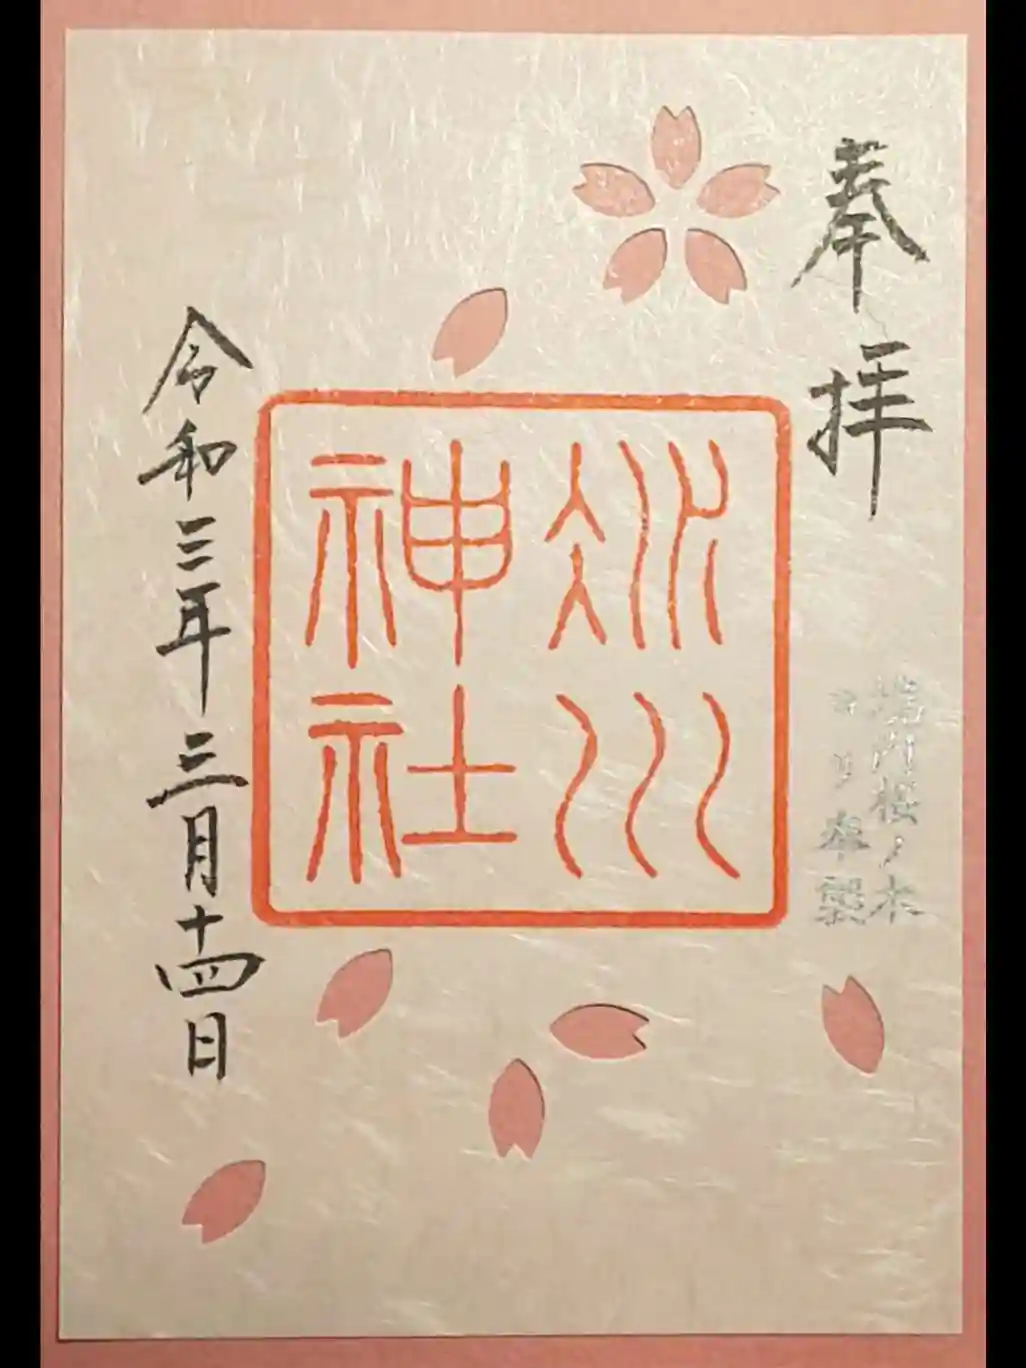 奉拝
境内桜ノ木
ヨリ奉製
氷川
神社
令和三年三月十四日